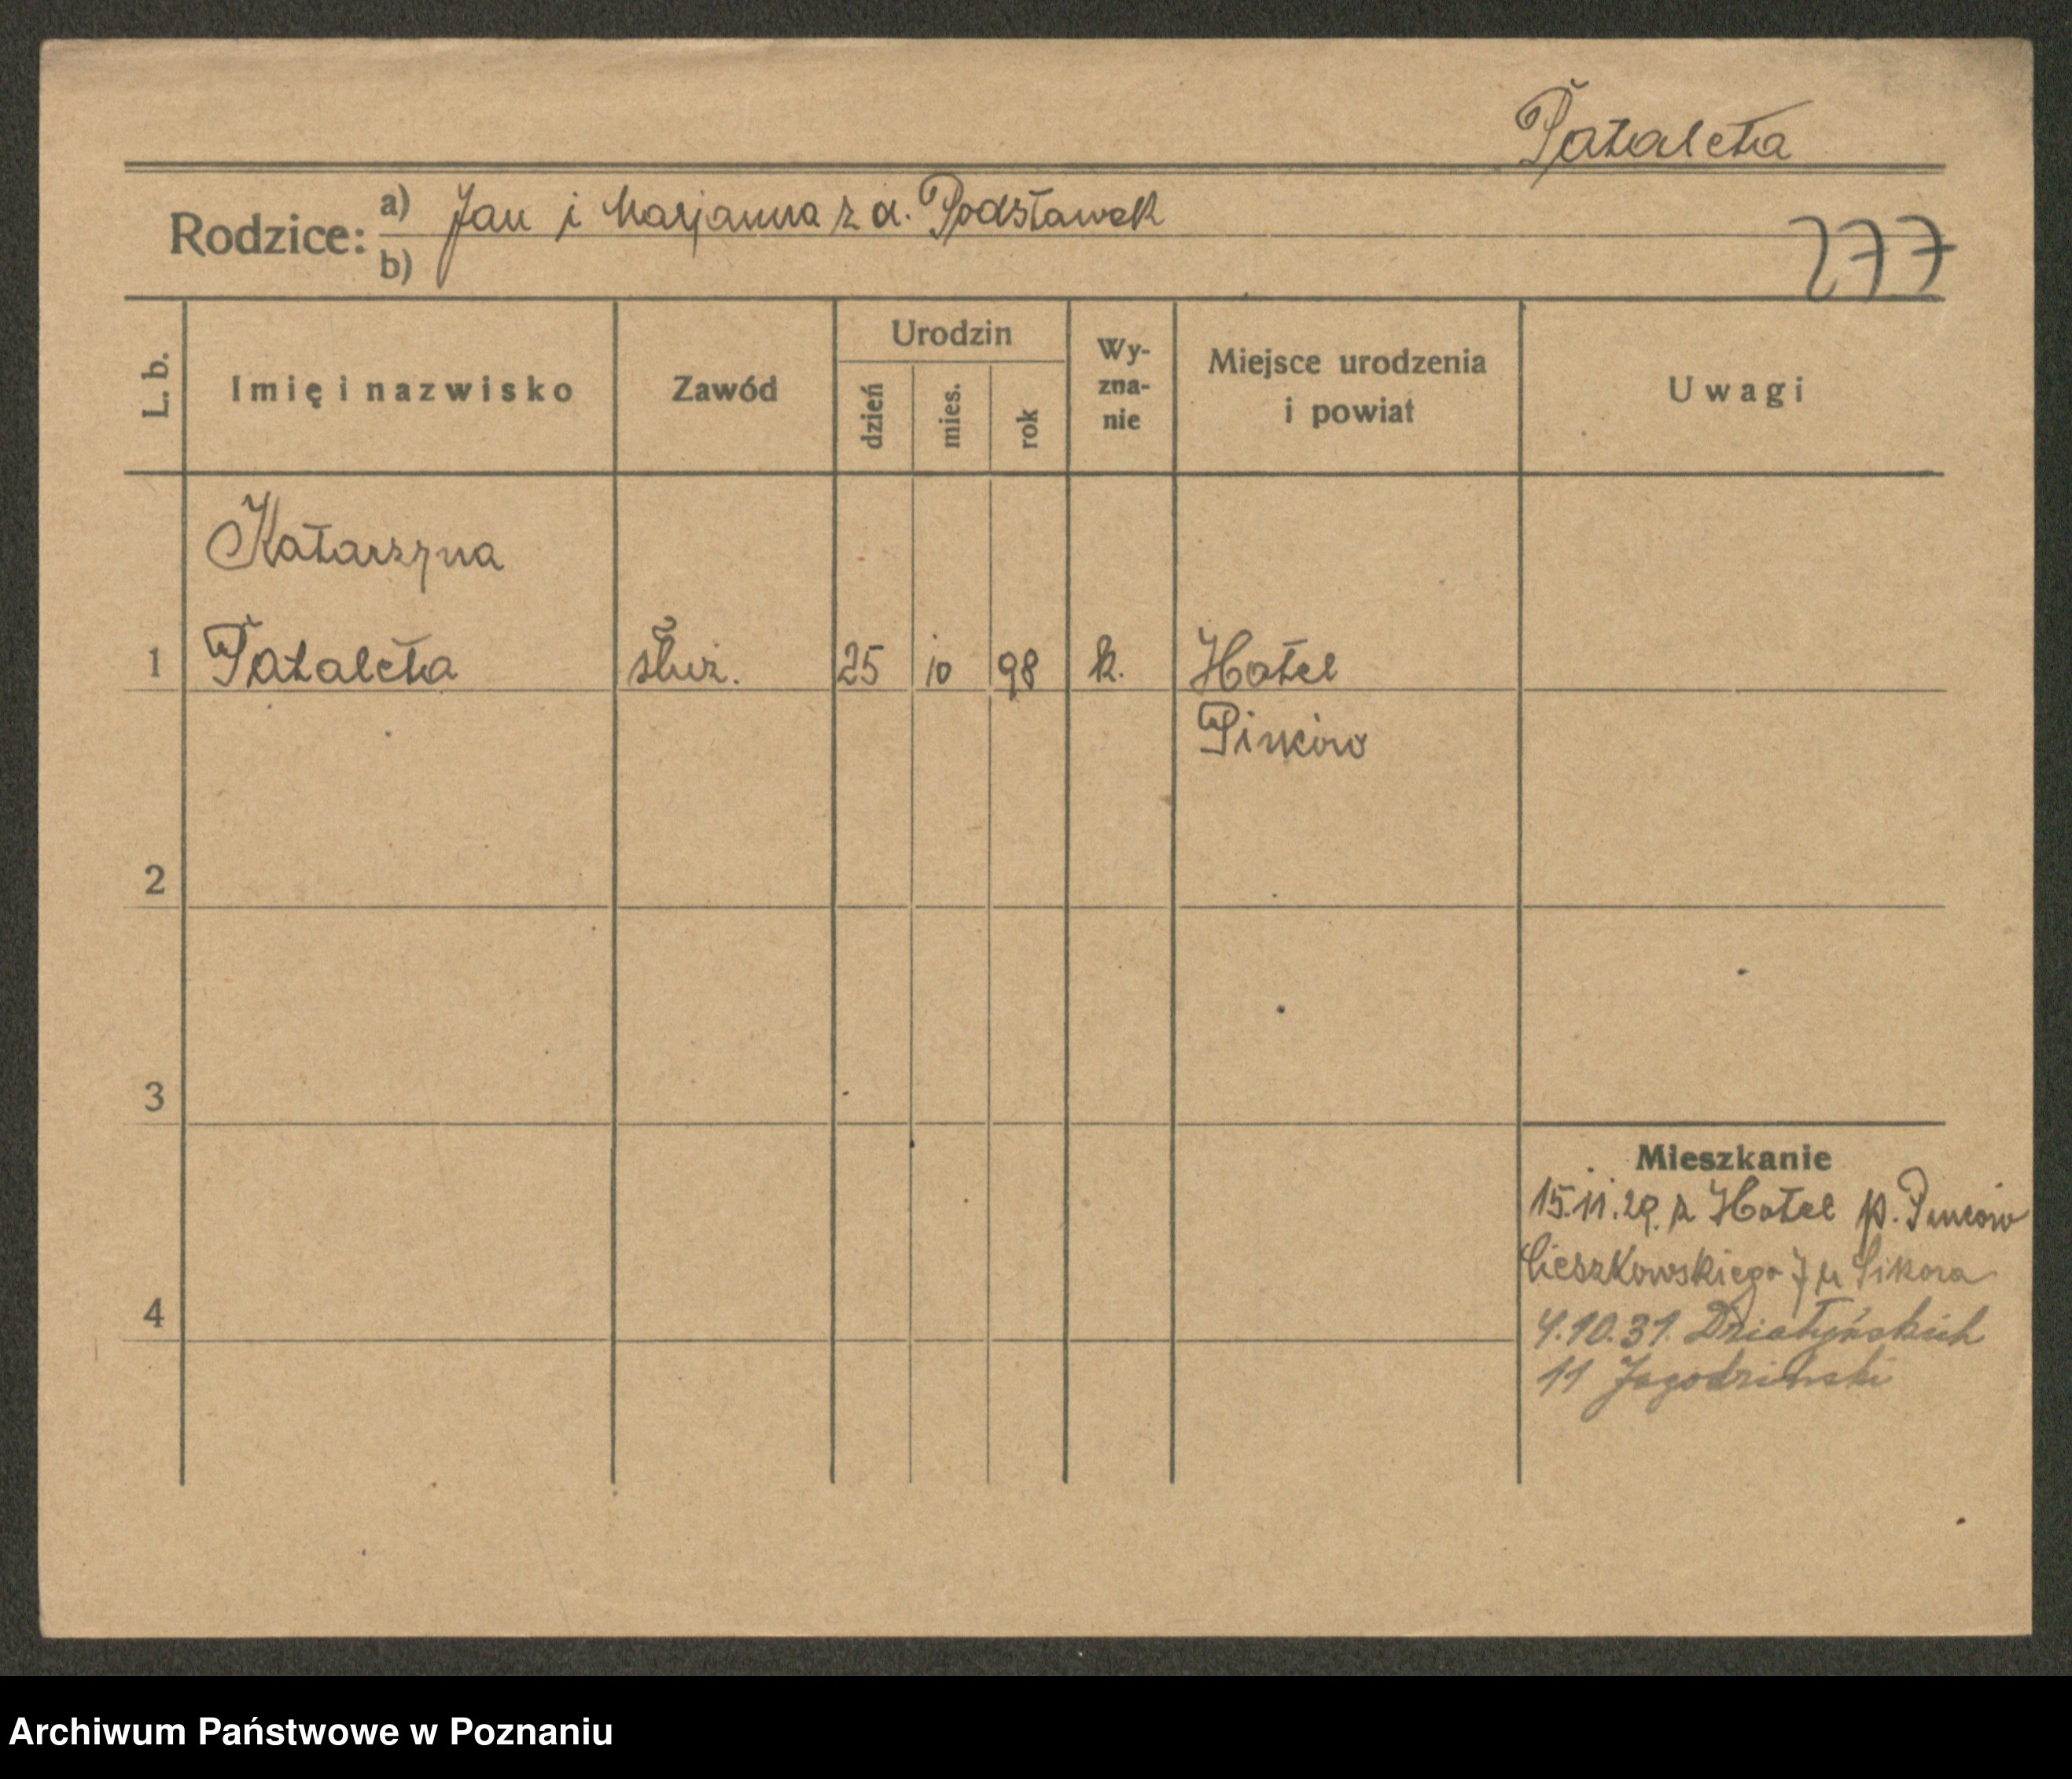 Pataleta
Rodzice: a) Jan i Marjanna z d. Podstawek
b)
277
L. b. Imię i nazwisko Zawód Urodzin dzień mies. rok Wy-zna-nie Miejsce urodzenia i powiat Uwagi
Katarzyna
1 Pataleta służ. 25 10 98 k. Hotel
Pinków
2
3
Mieszkanie
15.11.29. z Hotel p.
Cieszkowskiego 7 u Sikora
4
4.10.31. Działyńskich
11 Jagodziński
Archiwum Państwowe w Poznaniu